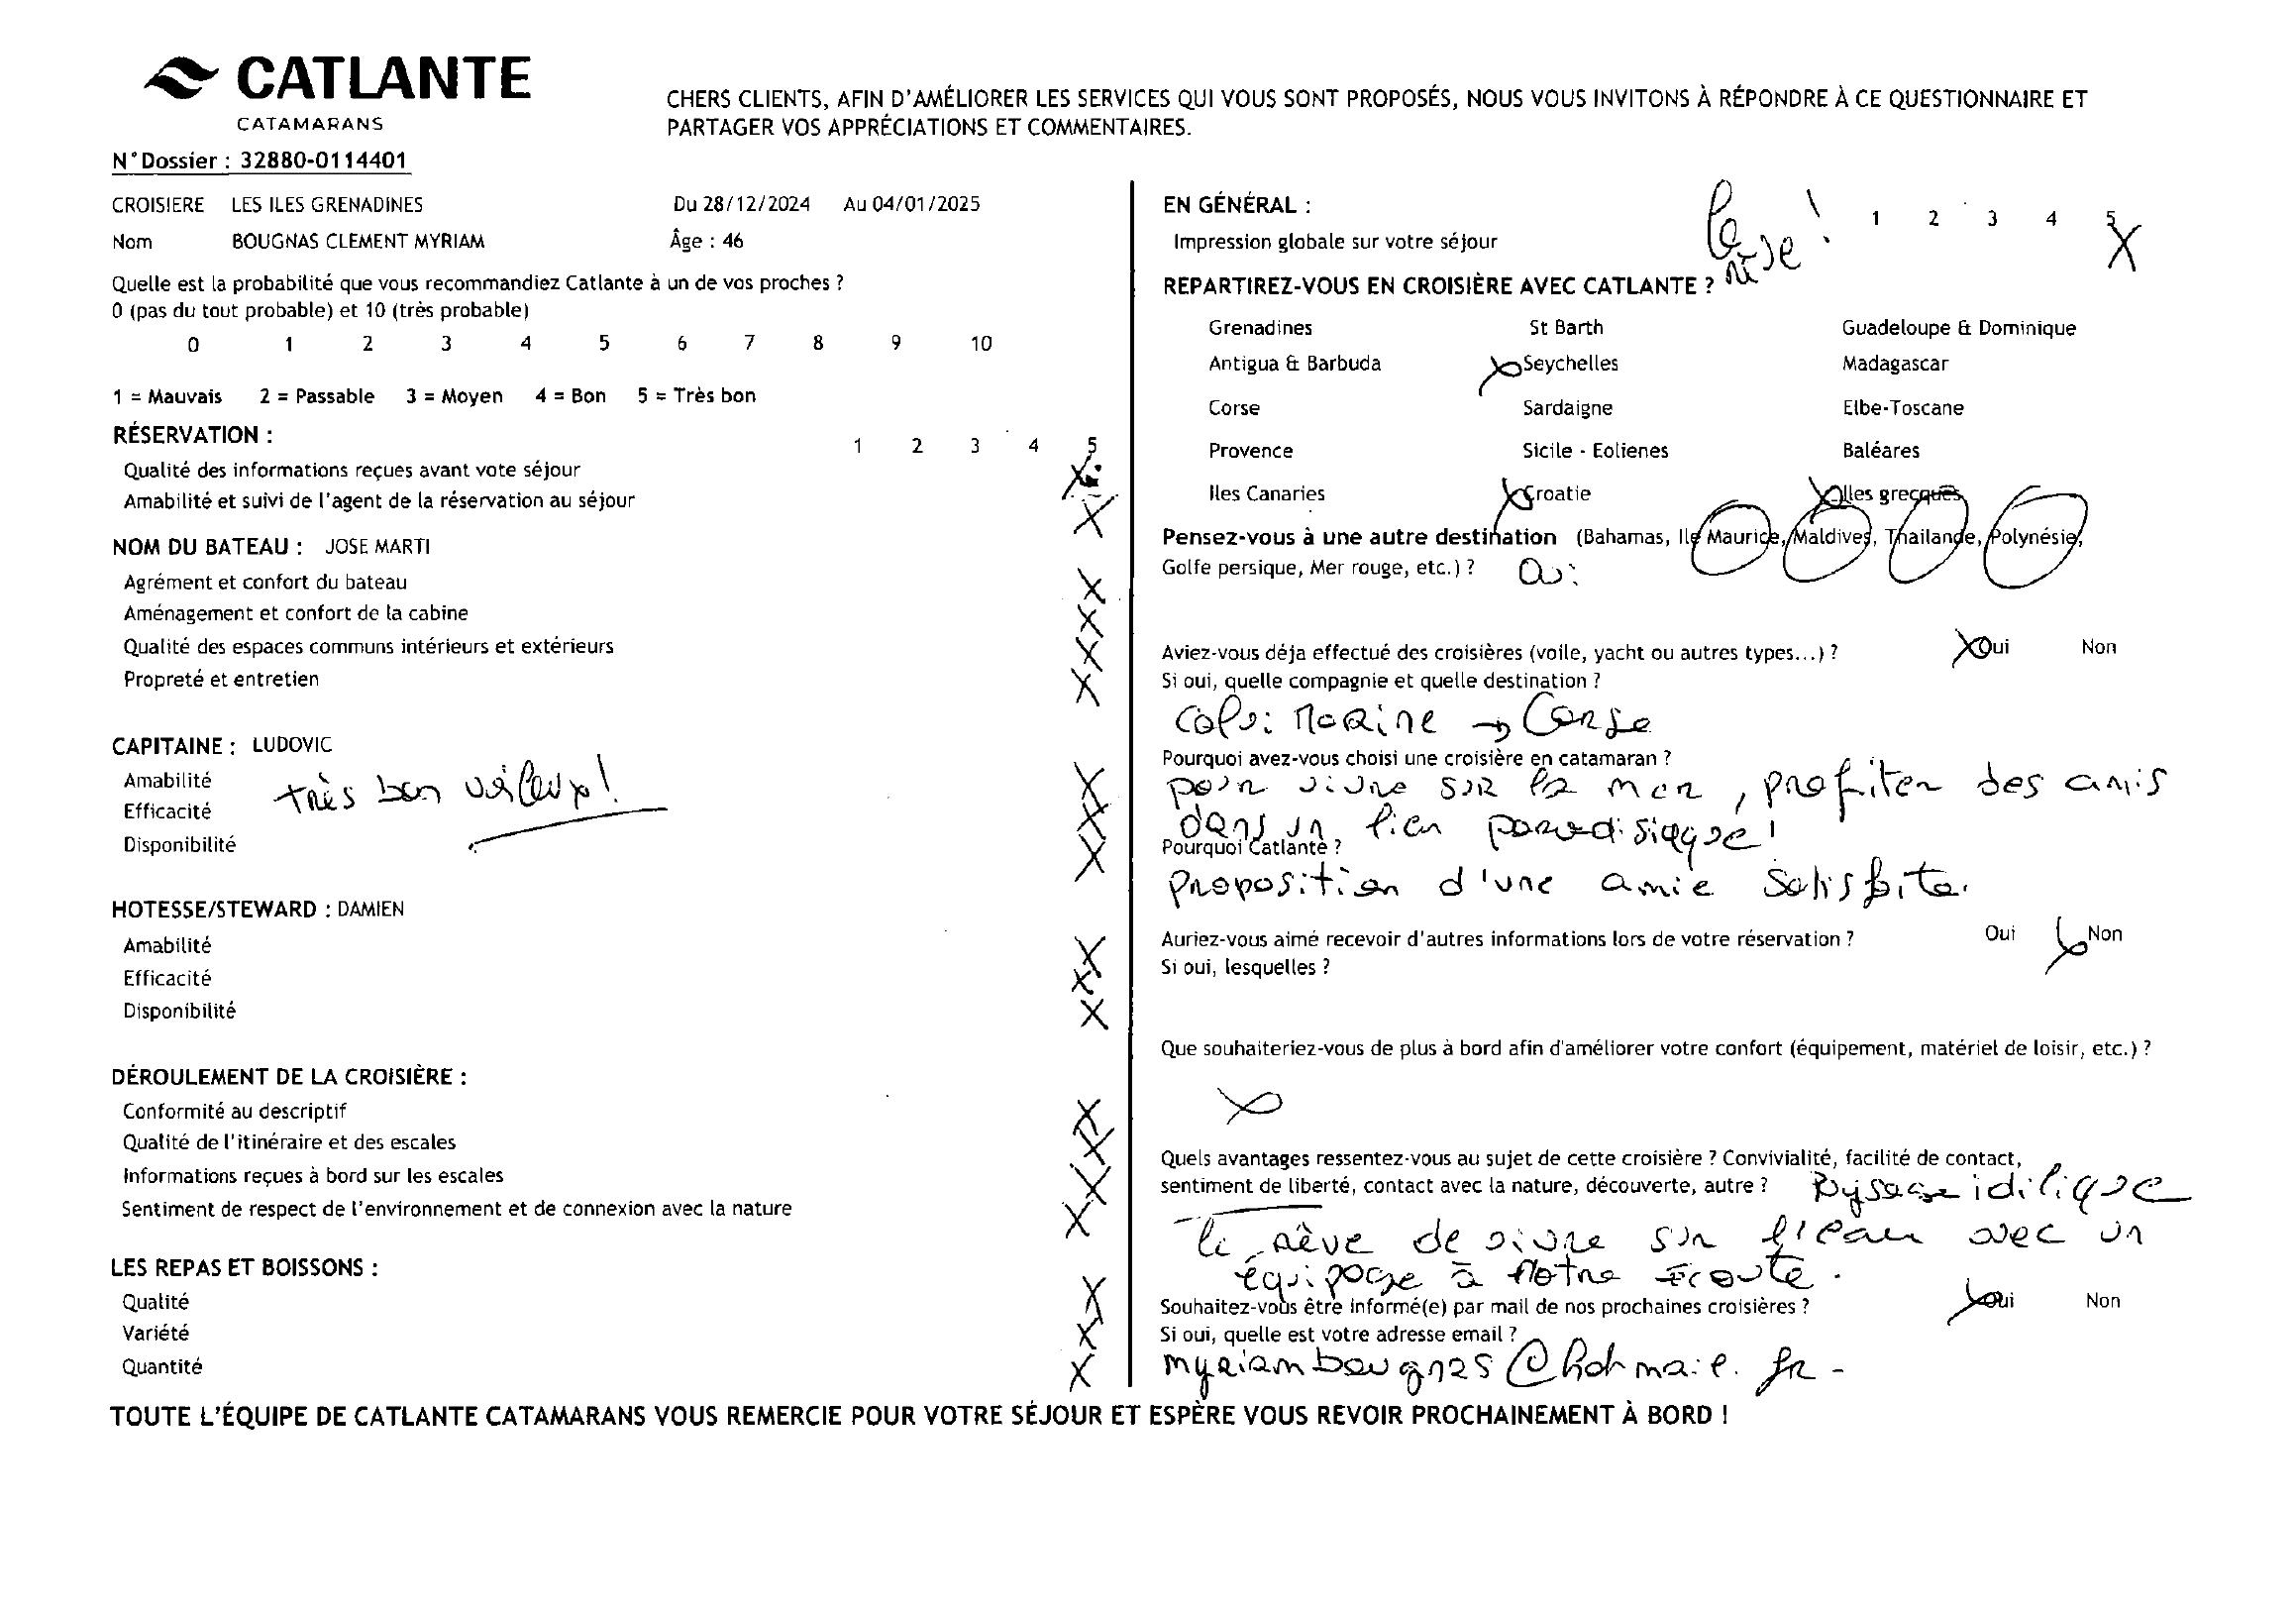 CATLANTE
CATAMARANS
CHERS CLIENTS, AFIN D'AMÉLIORER LES SERVICES QUI VOUS SONT PROPOSÉS, NOUS VOUS INVITONS À RÉPONDRE À CE QUESTIONNAIRE ET
PARTAGER VOS APPRÉCIATIONS ET COMMENTAIRES.
N°Dossier : 32880-0114401
CROISIERE LES ILES GRENADINES Du 28/12/2024 Au 04/01/2025
Nom BOUGNAS CLEMENT MYRIAM Âge : 46
Quelle est la probabilité que vous recommandiez Catlante à un de vos proches ?
0 (pas du tout probable) et 10 (très probable)
0 1 2 3 4 5 6 7 8 9 10
1 = Mauvais 2 = Passable 3 = Moyen 4 = Bon 5 = Très bon
RÉSERVATION : 1 2 3 4 5
Qualité des informations reçues avant vote séjour X
Amabilité et suivi de l'agent de la réservation au séjour X
NOM DU BATEAU : JOSE MARTI
Agrément et confort du bateau X
Aménagement et confort de la cabine X
Qualité des espaces communs intérieurs et extérieurs X
Propreté et entretien X
CAPITAINE : LUDOVIC
Amabilité X
très bon !
Efficacité X
Disponibilité X
HOTESSE/STEWARD : DAMIEN
Amabilité X
Efficacité X
Disponibilité X
DÉROULEMENT DE LA CROISIÈRE :
Conformité au descriptif X
Qualité de l'itinéraire et des escales X
Informations reçues à bord sur les escales X
Sentiment de respect de l'environnement et de connexion avec la nature X
LES REPAS ET BOISSONS :
Qualité X
Variété X
Quantité X
EN GÉNÉRAL : 1 2 3 4 5
Impression globale sur votre séjour X
REPARTIREZ-VOUS EN CROISIÈRE AVEC CATLANTE ?
Grenadines St Barth Guadeloupe & Dominique
Antigua & Barbuda X Seychelles Madagascar
Corse Sardaigne Elbe-Toscane
Provence Sicile - Eoliennes Baléares
Iles Canaries X Croatie X Iles grecques
Pensez-vous à une autre destination (Bahamas, Ile Maurice, Maldives, Thailande, Polynésie,
Golfe persique, Mer rouge, etc.) ? Oui
Aviez-vous déja effectué des croisières (voile, yacht ou autres types...) ? X Oui Non
Si oui, quelle compagnie et quelle destination ?
Calvi Marine → Corse
Pourquoi avez-vous choisi une croisière en catamaran ?
pour vivre sur la mer, profiter des amis
dans un lieu paradisiaque !
Pourquoi Catlante ?
Proposition d'une amie satisfaite.
Auriez-vous aimé recevoir d'autres informations lors de votre réservation ? Oui X Non
Si oui, lesquelles ?
Que souhaiteriez-vous de plus à bord afin d'améliorer votre confort (équipement, matériel de loisir, etc.) ?
X
Quels avantages ressentez-vous au sujet de cette croisière ? Convivialité, facilité de contact,
sentiment de liberté, contact avec la nature, découverte, autre ? Paysage idilique
le rêve de vivre sur l'eau avec un
équipage à notre écoute.
Souhaitez-vous être informé(e) par mail de nos prochaines croisières ? X Oui Non
Si oui, quelle est votre adresse email ?
myriambougnas@hotmail.fr -
TOUTE L'ÉQUIPE DE CATLANTE CATAMARANS VOUS REMERCIE POUR VOTRE SÉJOUR ET ESPÈRE VOUS REVOIR PROCHAINEMENT À BORD !